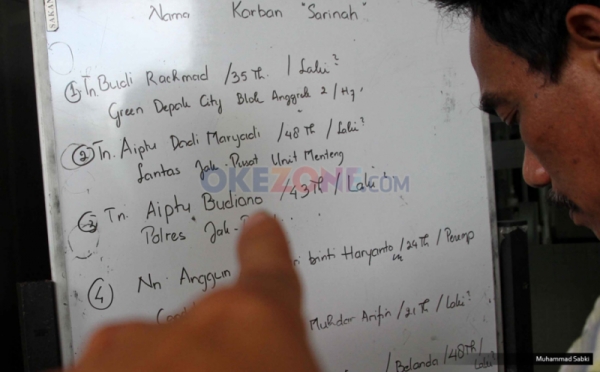 Nama Korban "Sarinah"
① Tn Budi Rackmad /35 Th. / Laki²
Green Depok City Blok Anggrek 2 / H9.
② Tn. Aiptu Dodi Maryadi /48 Th / Laki²
Lantas Jak-Pusat Unit Menteng
OKEZONE.COM
3 Tn. Aiptu Budiono /43 Th / Laki²
Polres Jak-
④ Nn. Anggun binti Haryanto /24 Th / Peremp
Muhdar Arifin /21 Th / Laki²
/ Belanda /48 Th / Laki
Muhammad Sabki